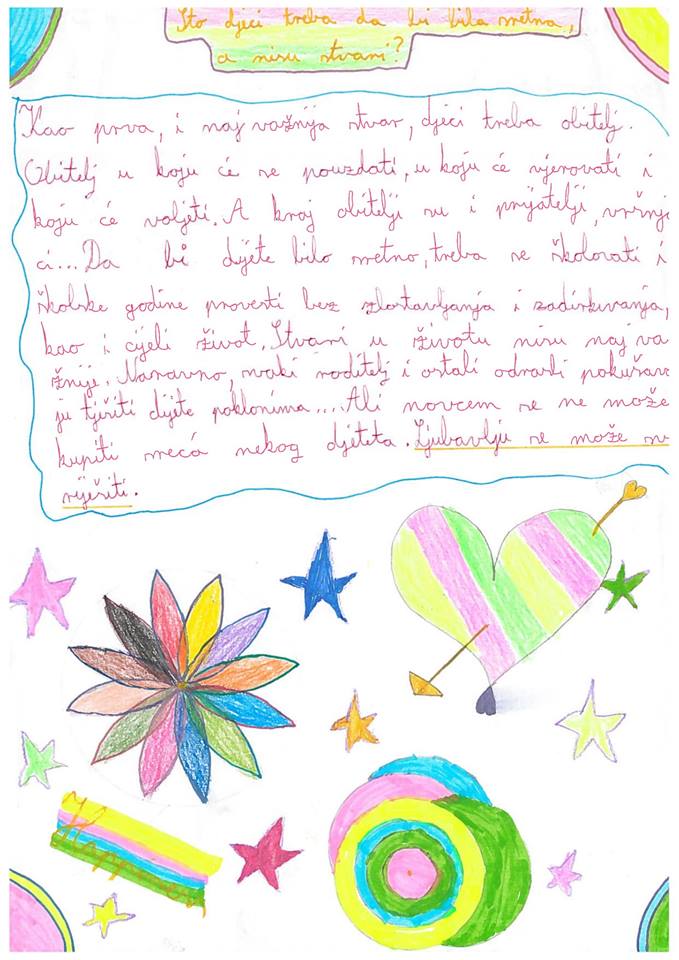 Što djeci treba da bi bila sretna,
a nisu stvari?
Kao prva, i naj važnija stvar, djeci treba obitelj.
Obitelj u koju će se pouzdati, u koju će vjerovati i
koju će voljeti. A kraj obitelji su i prijatelji, vršnja
ci... Da bi dijete bilo sretno, treba se školovati i
školske godine provesti bez zlostavljanja i zadirkivanja,
kao i cijeli život. Stvari u životu nisu naj va
žnije. Naravno, svaki roditelj i ostali odrasli pokušava
ju tješiti dijete poklonima.... Ali novcem se ne može
kupiti sreća nekog djeteta. Ljubavlju se može sv
riješiti.